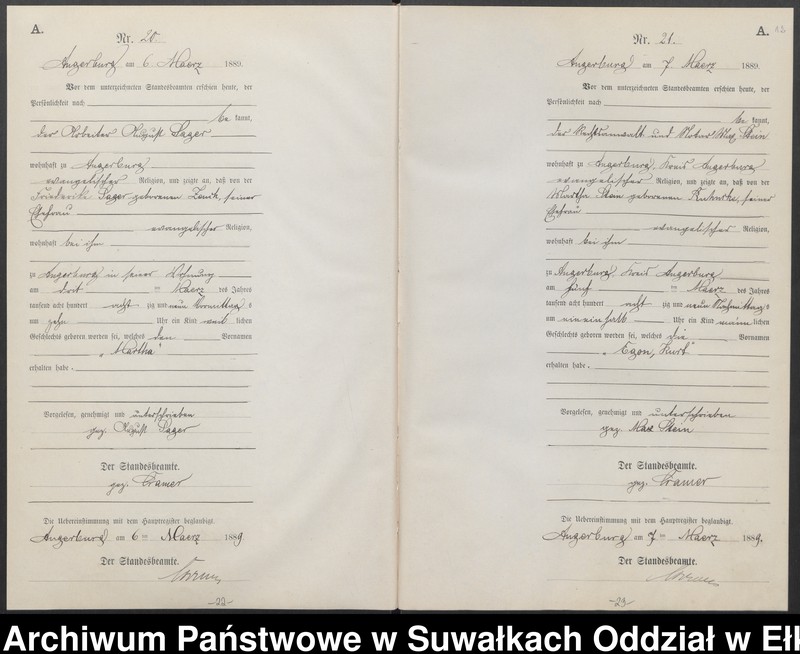 A.
Nr. 20.
Angerburg am 6 Maerz 1889.
Vor dem unterzeichneten Standesbeamten erschien heute, der
Persönlichkeit nach
be kannt,
der Arbeiter August Sager
wohnhaft zu Angerburg
evangelischer Religion, und zeigte an, daß von der
Friederike Sager geborenen seiner
Ehefrau
evangelischer Religion,
wohnhaft bei ihm
zu Angerburg in seiner Wohnung
am dritten Maerz des Jahres
tausend acht hundert acht zig und neun Vormittags
um zehn Uhr ein Kind weib lichen
Geschlechts geboren worden sei, welches den Vornamen
"Martha"
erhalten habe.
Vorgelesen, genehmigt und unterschrieben
gez. August Sager
Der Standesbeamte.
gez. Cramer
Die Uebereinstimmung mit dem Hauptregister beglaubigt.
Angerburg am 6 ten Maerz 1889
Der Standesbeamte.
-22-
A.
Nr. 21.
Angerburg am 7 Maerz 1889.
Vor dem unterzeichneten Standesbeamten erschien heute, der
Persönlichkeit nach
be kannt,
der Rechtsanwalt und Notar Max Stein
wohnhaft zu Angerburg, Kreis Angerburg
evangelischer Religion, und zeigte an, daß von der
Martha Stein geborenen seiner
Ehefrau
evangelischer Religion,
wohnhaft bei ihm
zu Angerburg Kreis Angerburg
am fünf ten Maerz des Jahres
tausend acht hundert acht zig und neun Nachmittags
um eineinhalb Uhr ein Kind männ lichen
Geschlechts geboren worden sei, welches die Vornamen
"Egon, Kurt"
erhalten habe.
Vorgelesen, genehmigt und unterschrieben
gez. Max Stein
Der Standesbeamte.
gez. Cramer
Die Uebereinstimmung mit dem Hauptregister beglaubigt.
Angerburg am 7 ten Maerz 1889.
Der Standesbeamte.
-23-
Archiwum Państwowe w Suwałkach Oddział w Ełk